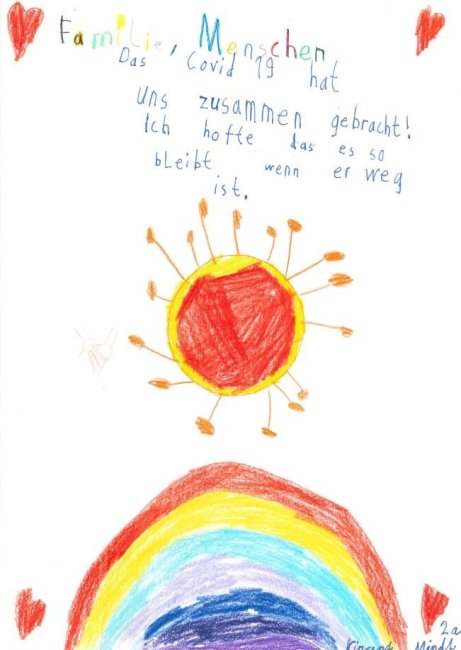 Familie, Menschen
Das Covid 19 hat
uns zusammen gebracht!
Ich hoffe das es so
bleibt wenn er weg
ist.
2a